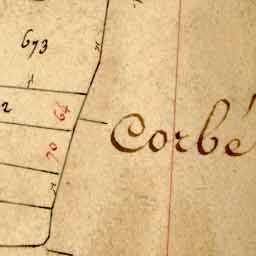 673
2
64
70
Corbé